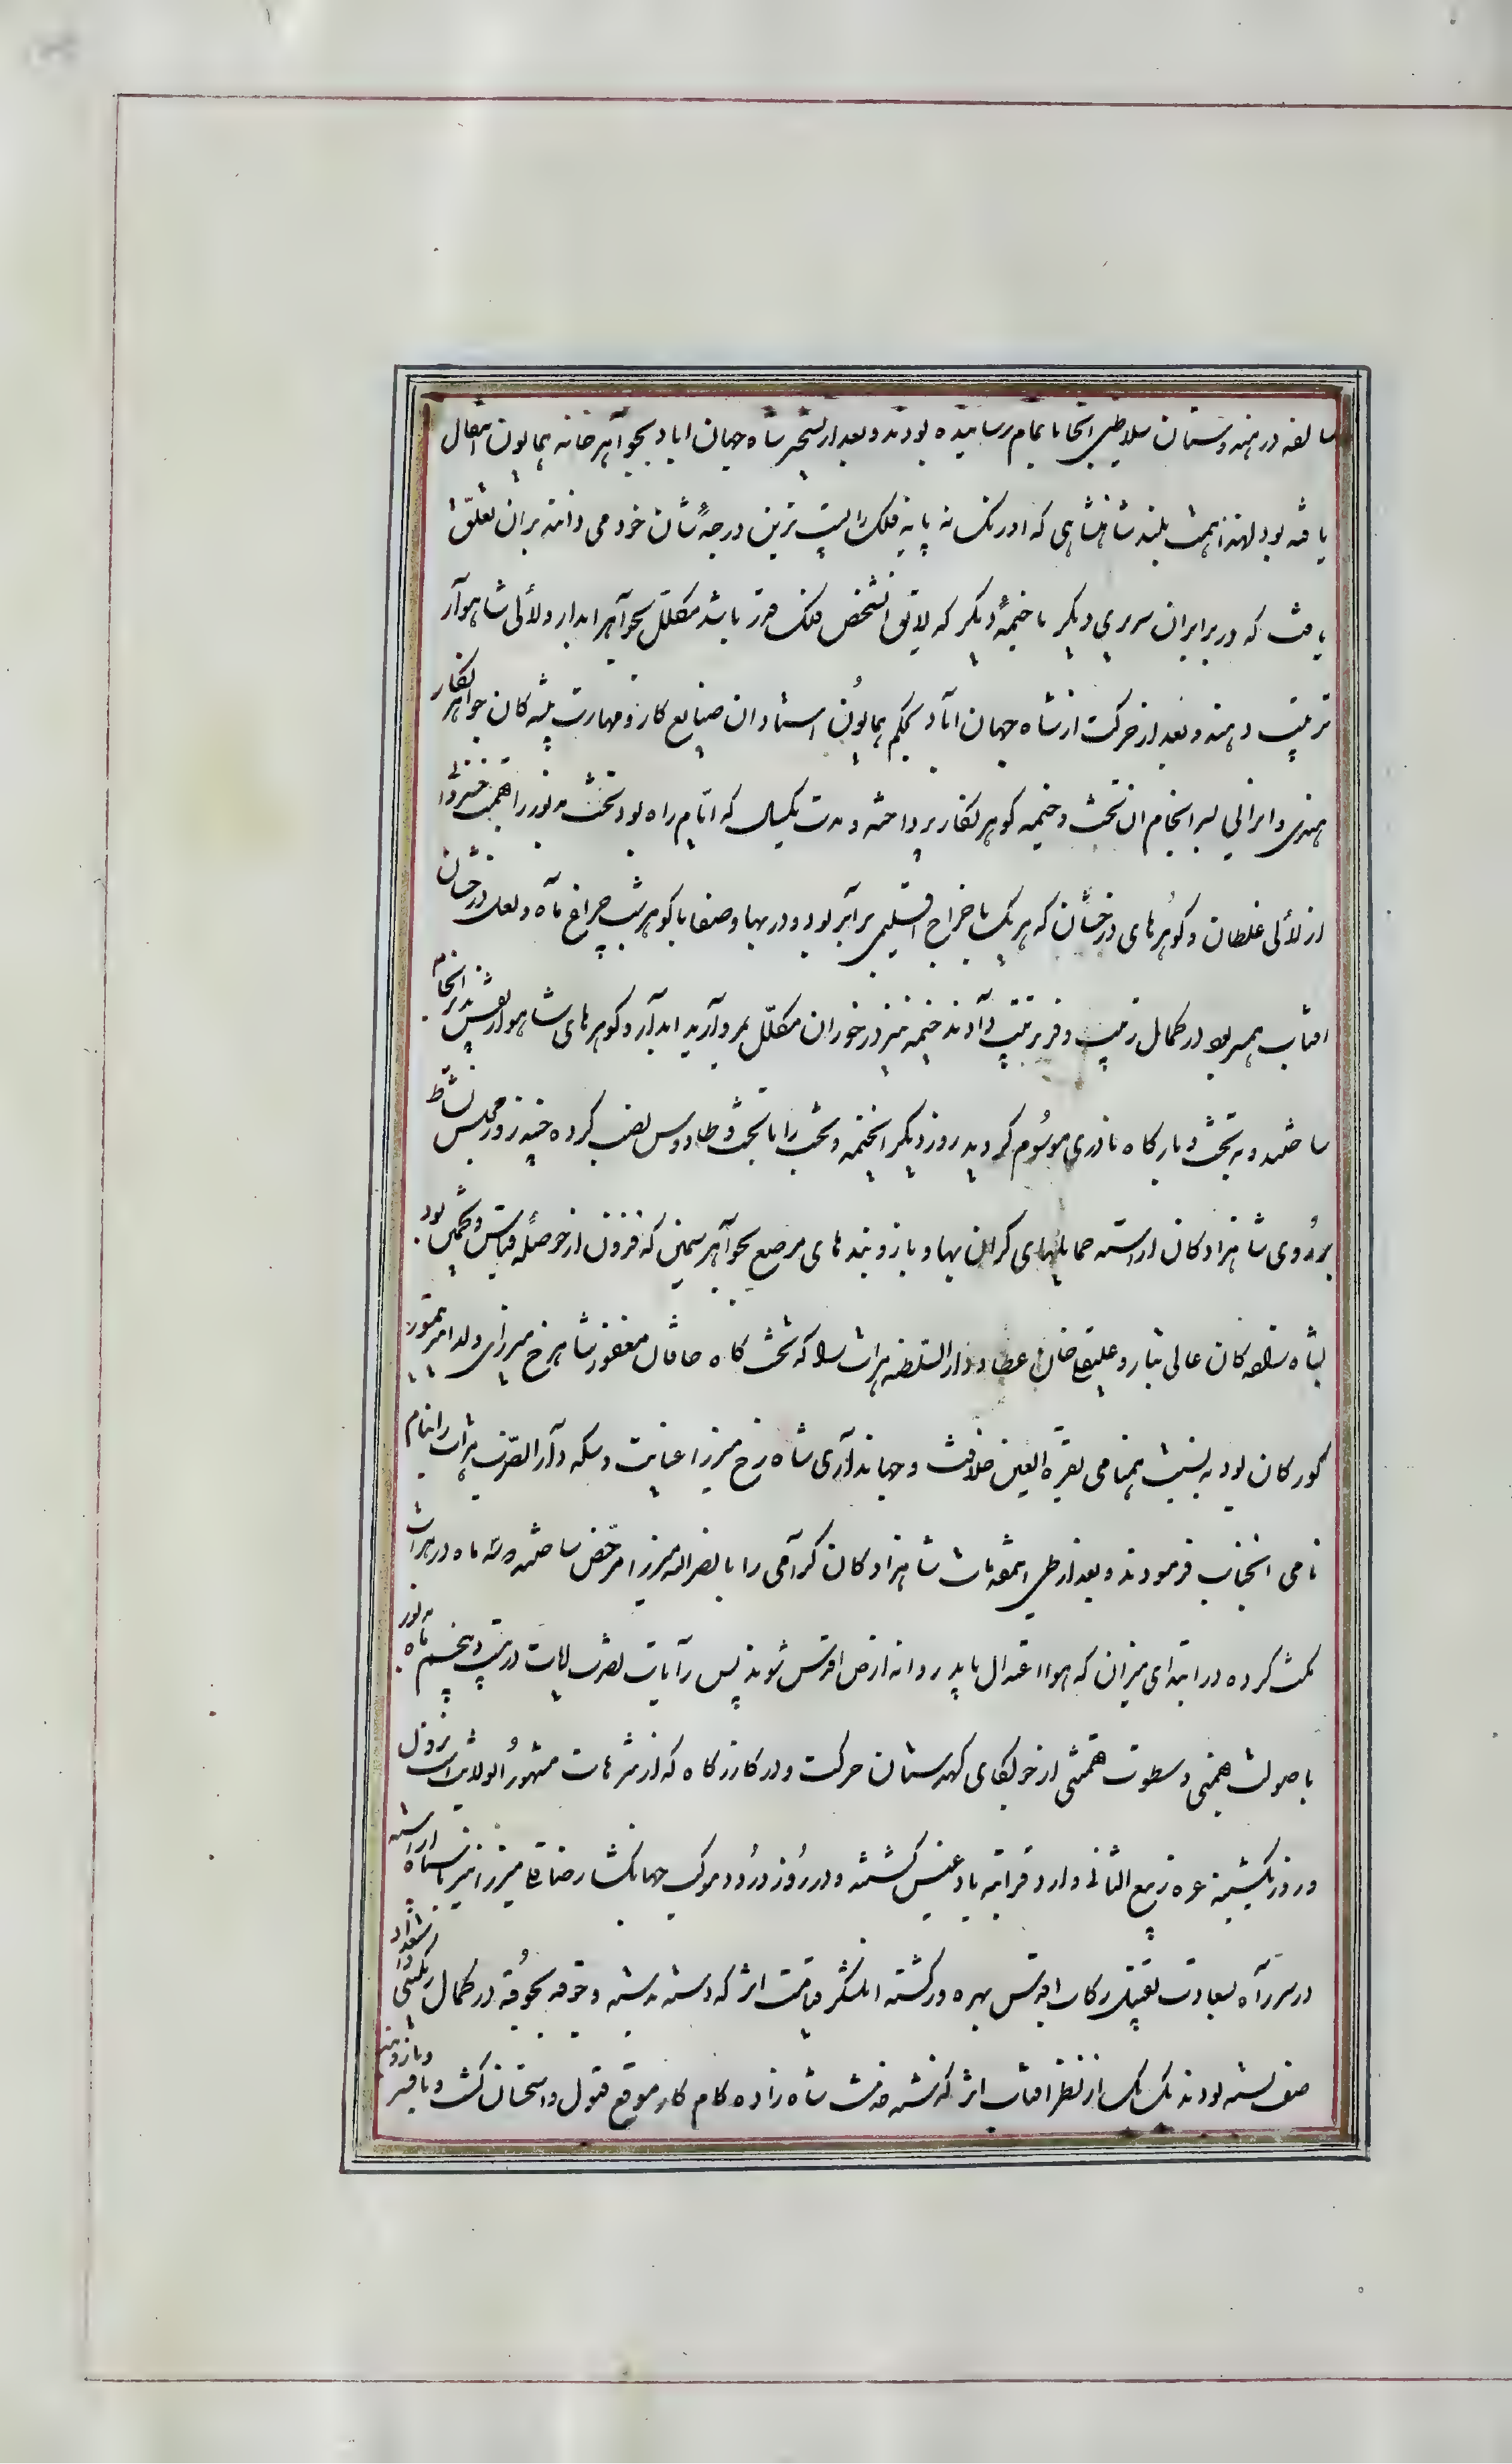 سالفه در هندوستان سلاطین آنجا باتمام رسانیده بودند و بعد از تسخیر شاه جهان اباد بجواهر خانه همایون انتقال
یافته بود لهذا همت بلند شاهنشاهی که اورنک نه پایه فلک را پست ترین درجهٔ شان خود می دانند بران تعلق
یافت که در برابر ان سریری دیکر با خیمهٔ دیکر که لایق آن شخص فلک فر باشد مکلل بجواهر ابدار و لألی شاهوار
ترتیب دهند و بعد از حرکت از شاه جهان اباد بحکم همایون استادان صنایع کار و مهارت پیشه کان جواهر نکار
هندی و ایرانی بسر انجام ان تخت و خیمه کوهر نکار پرداخته و مدت یکسال که ایام راه بود تخت
از لألی غلطان و کوهرهای درخشان که هر یک با خراج اقلیمی برابر بود و در بها و صفا با کوهر شب چراغ ماه و لعل درخشان
افتاب همسر بود در کمال زیب و فر ترتیب دادند خیمه نیز در خور ان مکلل بمروارید ابدار و کوهرهای شاهوار نقش پذیر انجام
ساختند و به تخت و بارکاه نادری موسوم کردید روز دیکر ان خیمه و تخت را با تخت طاووس نصب کرده چند روز مجلس نشاط
بر روی شاهزادکان اراسته حمایلهای کران بها و بازو بندهای مرصع بجواهر ثمین که فزون از حوصلهٔ قیاس و تخمین بود
بشاه زاده کان عالی تبار و علیقلی خان عطا و دار السلطنه هرات را که تخت کاه خاقان مغفور شاهرخ میرزای ولد امیر تیمور
کورکان بود به نسبت همنامی بقرة العین خلافت و جهانداری شاه رخ میرزا عنایت و سکه دار الضرب هرات را بنام
نامی انجناب فرمودند و بعد از طی اینمقدمات شاهزادکان کرامی را با نصر الله میرزا مرخص ساختند که دو سه ماه در هرات
مکث کرده در ابتدای میزان که هوا اعتدال یابد روانه ارض اقدس شوند پس رایات نصرت ایات در بیست و پنجم ماه مزبور
با صولت بهمنی و سطوت تهمتنی از جولکای کهدستان حرکت و در کازرکاه که از متنزهات مشهور الولایت است نزول
و روز یکشنبه غره ربیع الثانی وارد قراتپه بادغیس کشته و در روز ورود موکب جهانکشا رضا قلی میرزا نیز با سپاه اراسته
در سر راه بسعادت تقبیل رکاب اقدس بهره ور کشته ان لشکر قیامت اثر که دسته بدسته و جوقه بجوقه در کمال رنکینی
صف بسته بودند یک یک از نظر افتاب اثر کذشته خدمت شاه زاده کام کار موقع قبول و استحسان کشت و بافسر و بازوبند